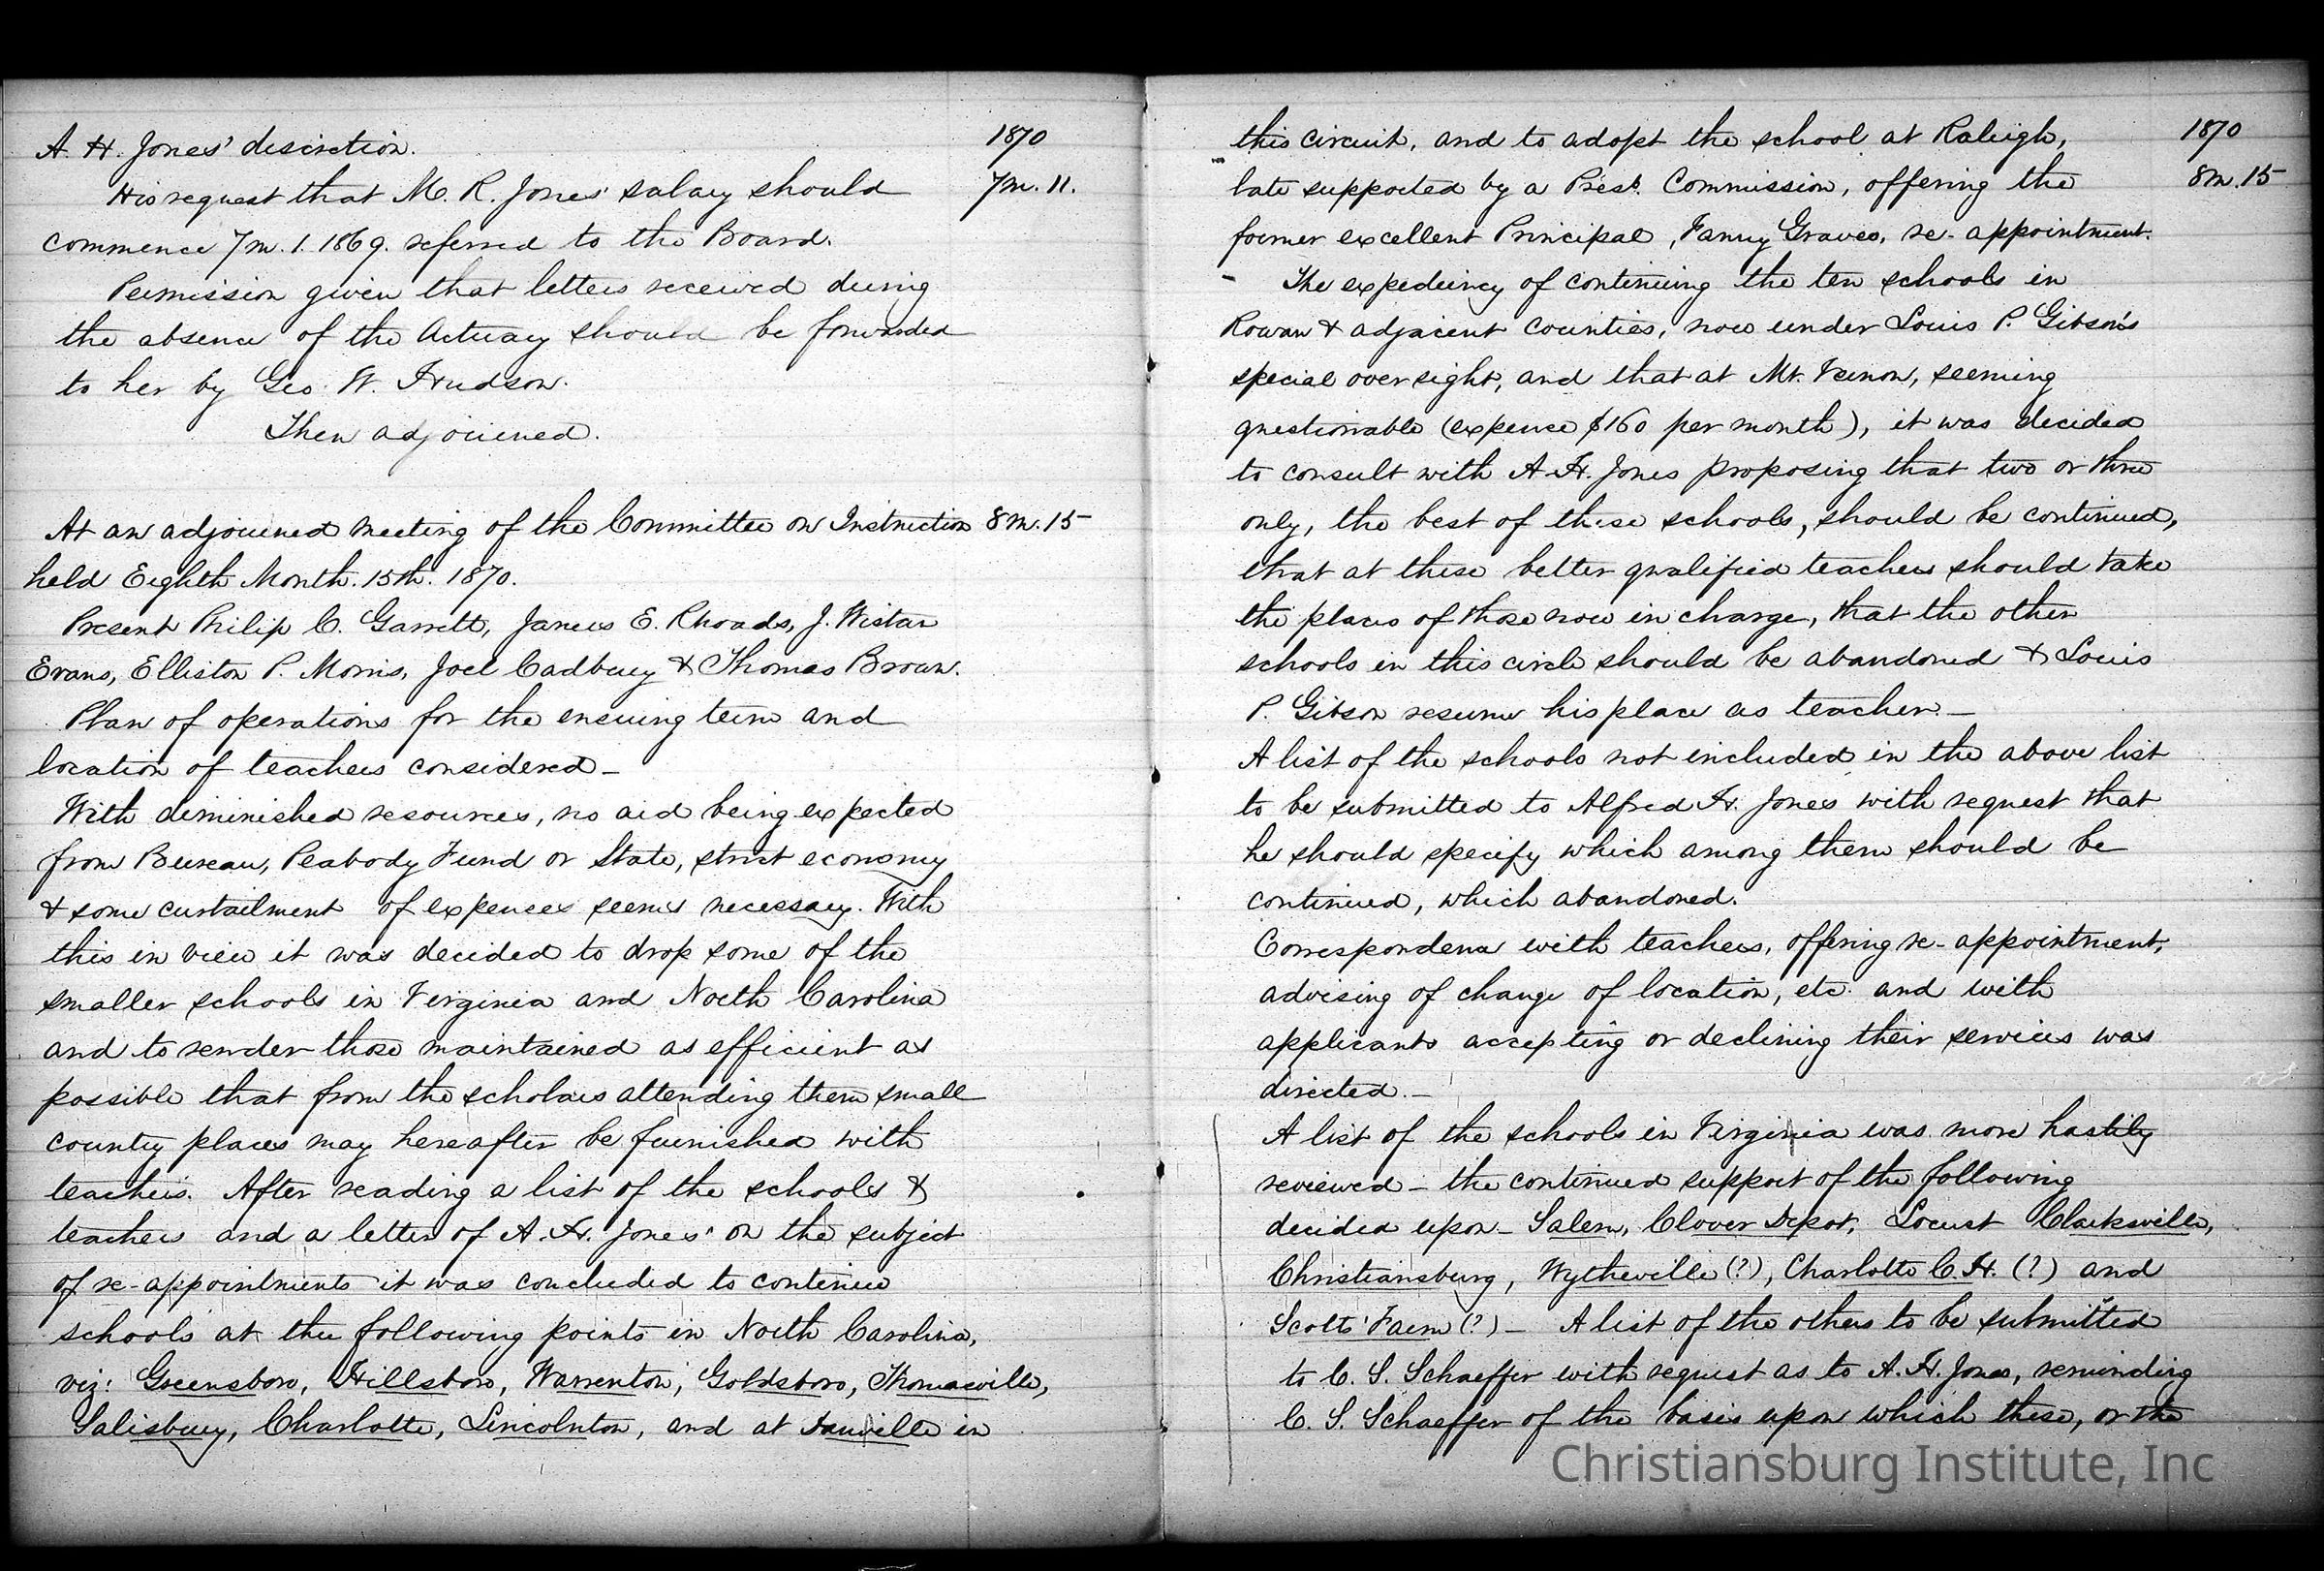 1870
A. H. Jones' discretion.
His request that M. R. Jones' salary should 7m. 11.
commence 7m. 1. 1869. referred to the Board.
Permission given that letters received during
the absence of the Actuary should be forwarded
to her by Geo. W. Hudson.
Then adjourned.
At an adjourned meeting of the Committee on Instruction 8m. 15
held Eighth Month. 15th. 1870.
Present Philip C. Garrett, James E. Rhoads, J. Wistar
Evans, Elliston P. Morris, Joel Cadbury & Thomas Brown.
Plan of operations for the ensuing term and
location of teachers considered –
With diminished resources, no aid being expected
from Bureau, Peabody Fund or State, strict economy
& some curtailment of expences seems necessary. With
this in view it was decided to drop some of the
smaller schools in Virginia and North Carolina
and to render those maintained as efficient as
possible that from the scholars attending them small
county places may hereafter be furnished with
teachers. After reading a list of the schools &
teachers and a letter of A. H. Jones' on the subject
of re-appointments it was concluded to continue
schools at the following points in North Carolina,
viz: Greensboro, Hillsboro, Warrenton, Goldsboro, Thomasville,
Salisbury, Charlotte, Lincolnton, and at Danville in
1870
this circuit, and to adopt the school at Raleigh,
late supported by a Presb. Commission, offering the 8m. 15
former excellent Principal, Fanny Graves, re-appointment.
– The expediency of continuing the ten schools in
Rowan & adjacent counties, now under Louis P. Gibson's
special oversight, and that at Mt. Vernon, seeming
questionable (expence $160 per month), it was decided
to consult with A. H. Jones proposing that two or three
only, the best of these schools, should be continued,
that at these better qualified teachers should take
the places of those now in charge, that the other
schools in this circle should be abandoned & Louis
P. Gibson resume his place as teacher. –
A list of the schools not included in the above list
to be submitted to Alfred H. Jones with request that
he should specify which among them should be
continued, which abandoned.
Correspondence with teachers, offering re-appointment,
advising of change of location, etc. and with
applicants accepting or declining their services was
directed. –
A list of the schools in Virginia was more hastily
reviewed – the continued support of the following
decided upon – Salem, Clover Depot, Locust Clarksville,
Christiansburg, Wytheville (?), Charlotte C. H. (?) and
Scotts' Farm (?) – A list of the others to be submitted
to C. S. Schaeffer with request as to A. H. Jones, reminding
C. S. Schaeffer of the basis upon which these, or the
Christiansburg Institute, Inc